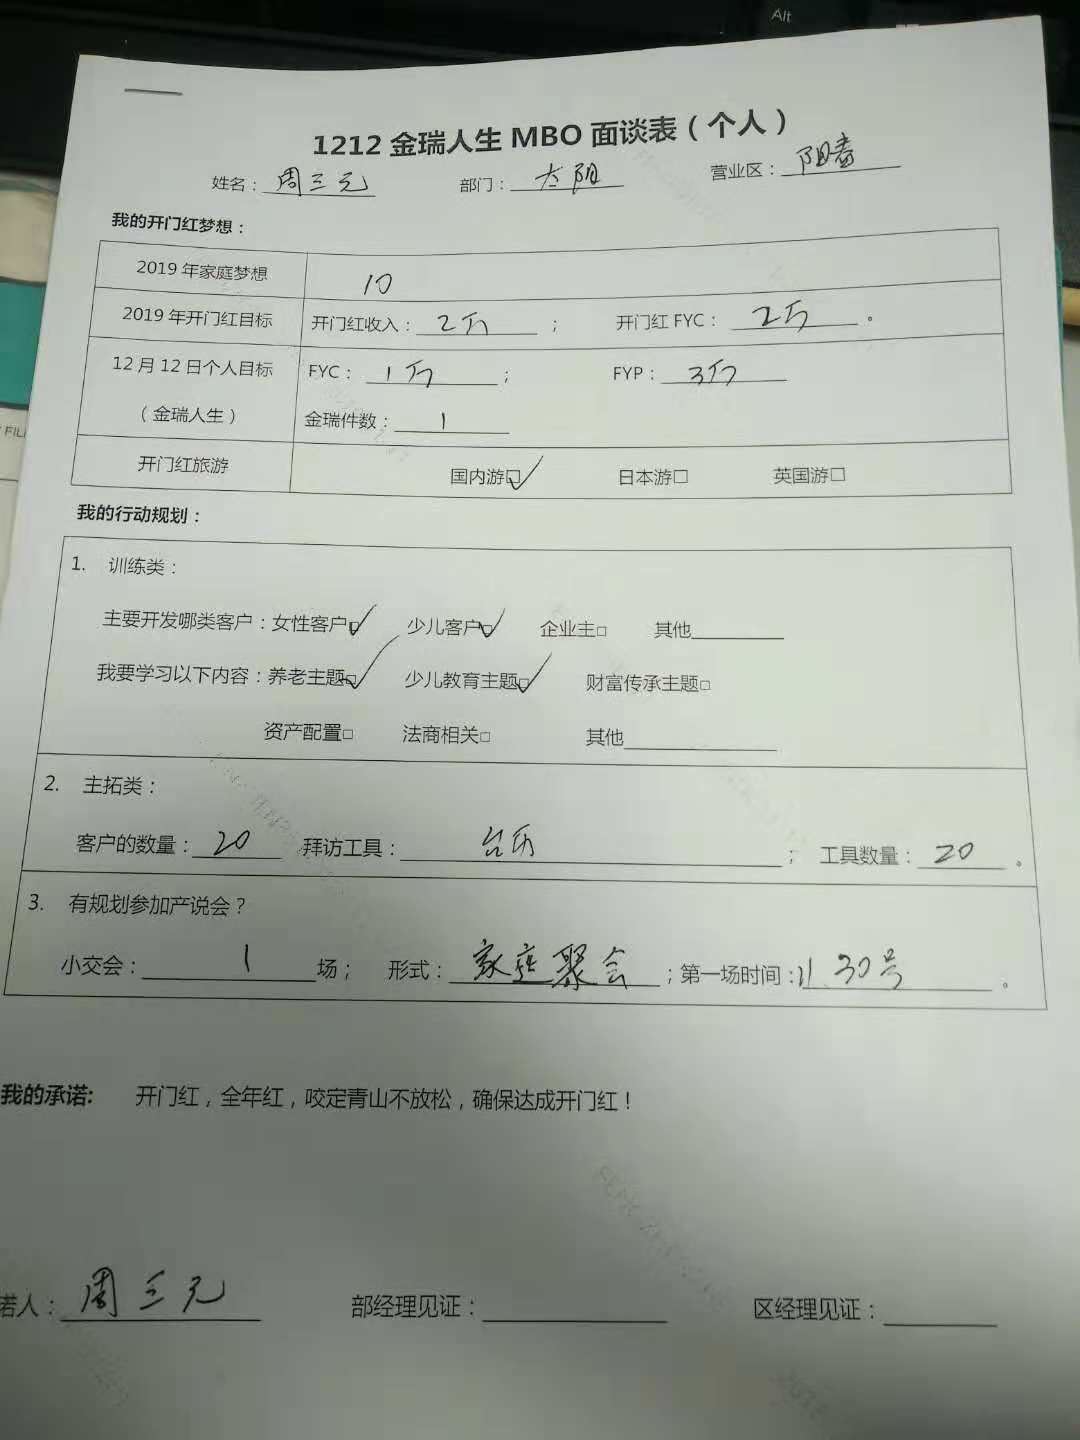 Alt
1212 金瑞人生 MBO 面谈表（个人）
姓名：周三元 部门：太阳 营业区：阳春
我的开门红梦想：
2019 年家庭梦想 10
2019 年开门红目标 开门红收入：2万； 开门红 FYC：2万。
12 月 12 日个人目标 FYC：1万； FYP：3万
（金瑞人生） 金瑞件数：1
开门红旅游 国内游☑ 日本游□ 英国游□
我的行动规划：
1. 训练类：
主要开发哪类客户：女性客户☑ 少儿客户☑ 企业主□ 其他
我要学习以下内容：养老主题☑ 少儿教育主题☑ 财富传承主题□
资产配置□ 法商相关□ 其他
2. 主拓类：
客户的数量：20 拜访工具：台历； 工具数量：20。
3. 有规划参加产说会？
小交会：1场； 形式：家庭聚会；第一场时间：11.30号。
我的承诺： 开门红，全年红，咬定青山不放松，确保达成开门红！
诺人：周三元 部经理见证： 区经理见证：